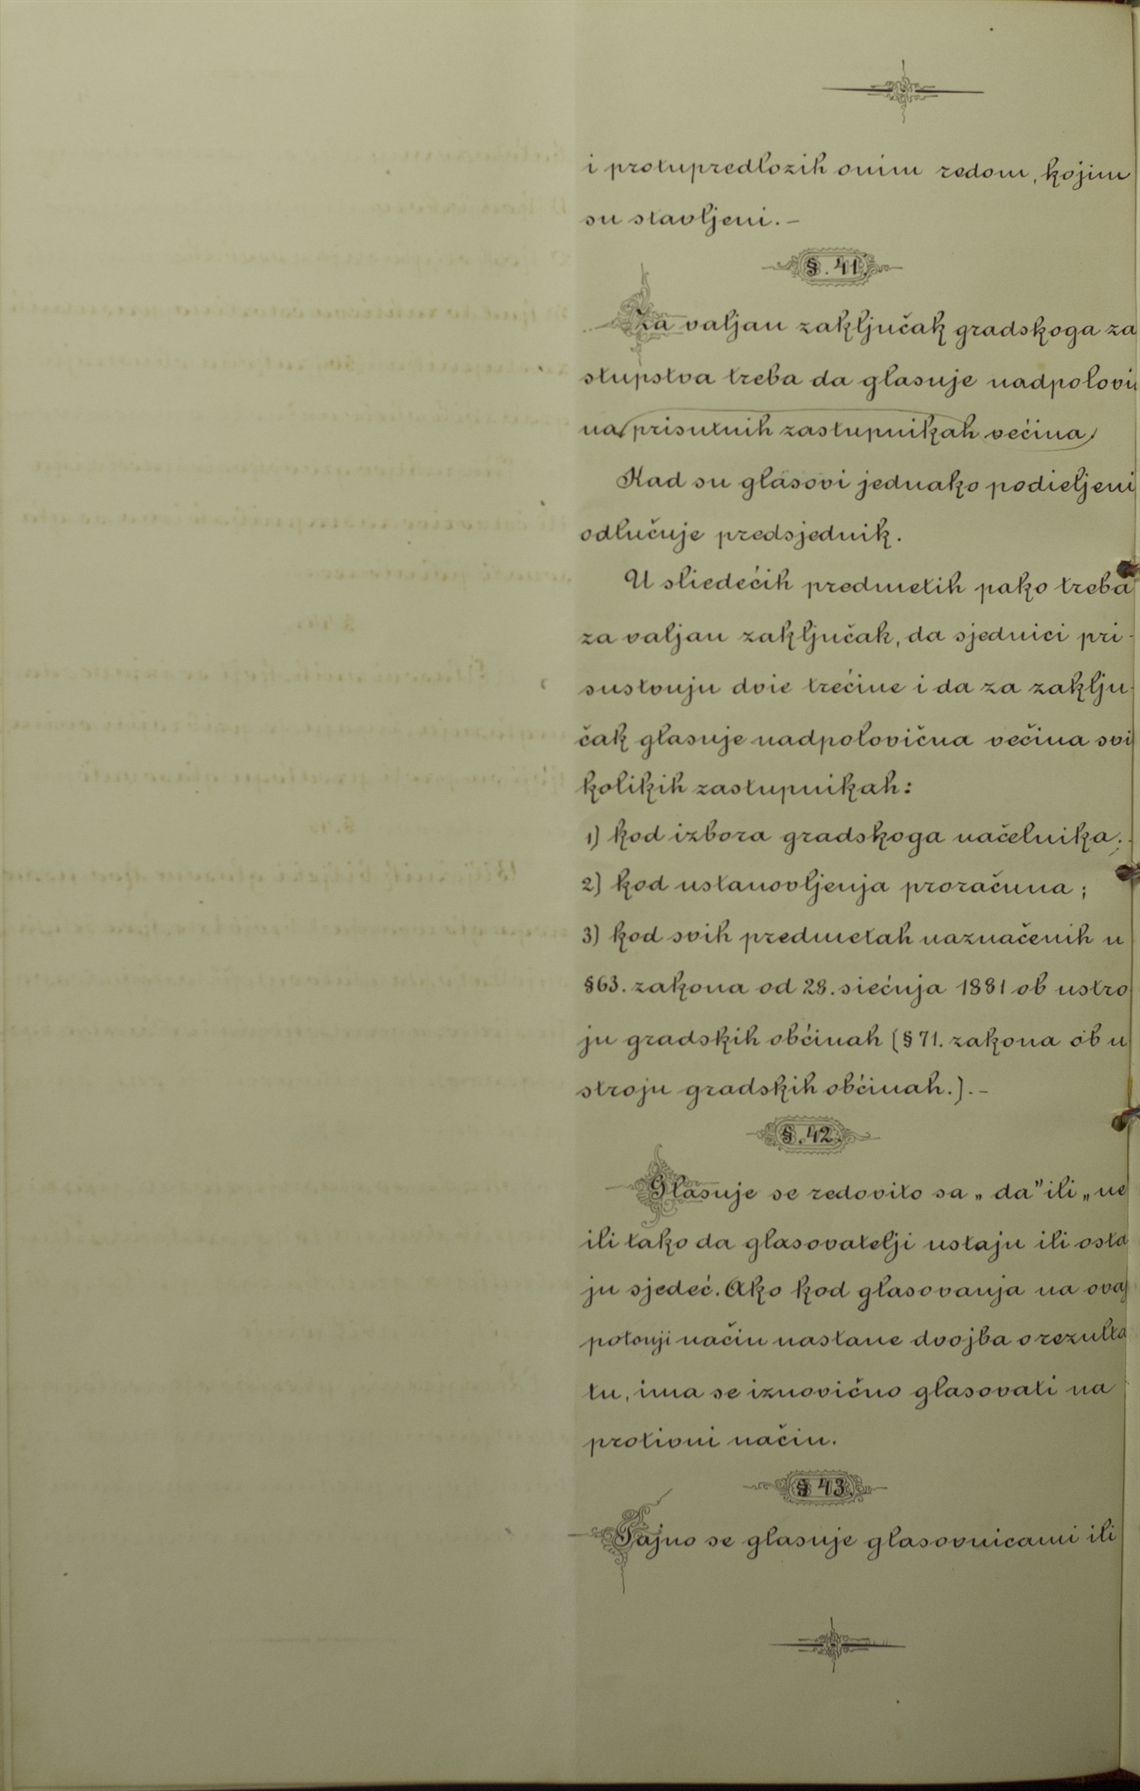 i protupredlozih onim redom, kojim
su stavljeni.-
§. 41.
Za valjan zaključak gradskoga za
stupstva treba da glasuje nadpolovi
na (prisutnih zastupnikah većina)
Kad su glasovi jednako podieljeni
odlučuje predsjednik.
U sliedećih predmetih pako treba
za valjan zaključak, da sjednici pri-
sustvuju dvie trećine i da za zaklju-
čak glasuje nadpolovična većina svi
kolikih zastupnikah:
1) kod izbora gradskoga načelnika;
2) kod ustanovljenja proračuna;
3) kod svih predmetah naznačenih u
§63. zakona od 28. siečnja 1881 ob ustro
ju gradskih obćinah (§ 71. zakona ob u
stroju gradskih obćinah.).-
§. 42.
Glasuje se redovito sa „da" ili „ne
ili tako da glasovatelji ustaju ili osta
ju sjedeć. Ako kod glasovanja na ovaj
potonji način nastane dvojba o rezulta
tu, ima se iznovično glasovati na
protivni način.
§ 43.
Tajno se glasuje glasovnicami ili